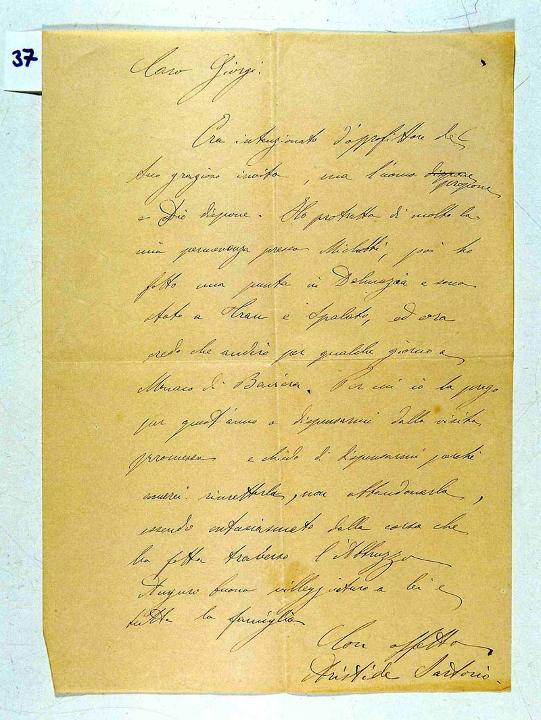 37
Caro Giorgi.
Era intenzionato d'approfittare del
suo grazioso invito, ma l'uomo dispone
propone
e Dio dispone. Ho protratta di molto la
mia permanenza presso Michetti, poi ho
fatto una punta in Dalmazia e sono
stato a Trau e Spalato, ed ora
credo che andrò per qualche giorno a
Monaco di Baviera. Per cui io la prego
per quest'anno a dispensarmi dalla visita
promessa e chiedo di dispensarmi perchè
amerei rimetterla, non abbandonarla,
essendo entusiasmato dalla corsa che
ho fatta traverso l'Abbruzzo
Auguro buona villeggiatura a lei e
tutta la famiglia
Con affetto
Aristide Sartorio.